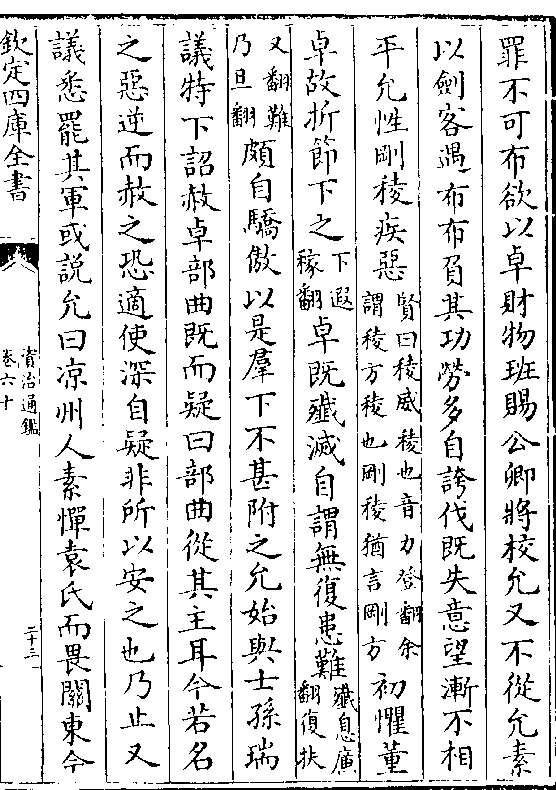 罪不可布欲以卓財物班賜公卿將校允又不從允素
以劍客遇布布負其功勞多自誇伐既失意望漸不相
平允性剛稜疾惡賢曰稜威稜也音力登翻余謂稜方稜也剛稜猶言剛方初懼董
卓故折節下之下遐稼翻卓既殲滅自謂無復患難殲息廉翻復扶
又翻難乃旦翻頗自驕傲以是羣下不甚附之允始與士孫瑞
議特下詔赦卓部曲既而疑曰部曲從其主耳今若名
之惡逆而赦之恐適使深自疑非所以安之也乃止又
議悉罷其軍或説允曰凉州人素憚袁氏而畏關東今
欽定四庫全書
資治通鑑
卷六十
二十三